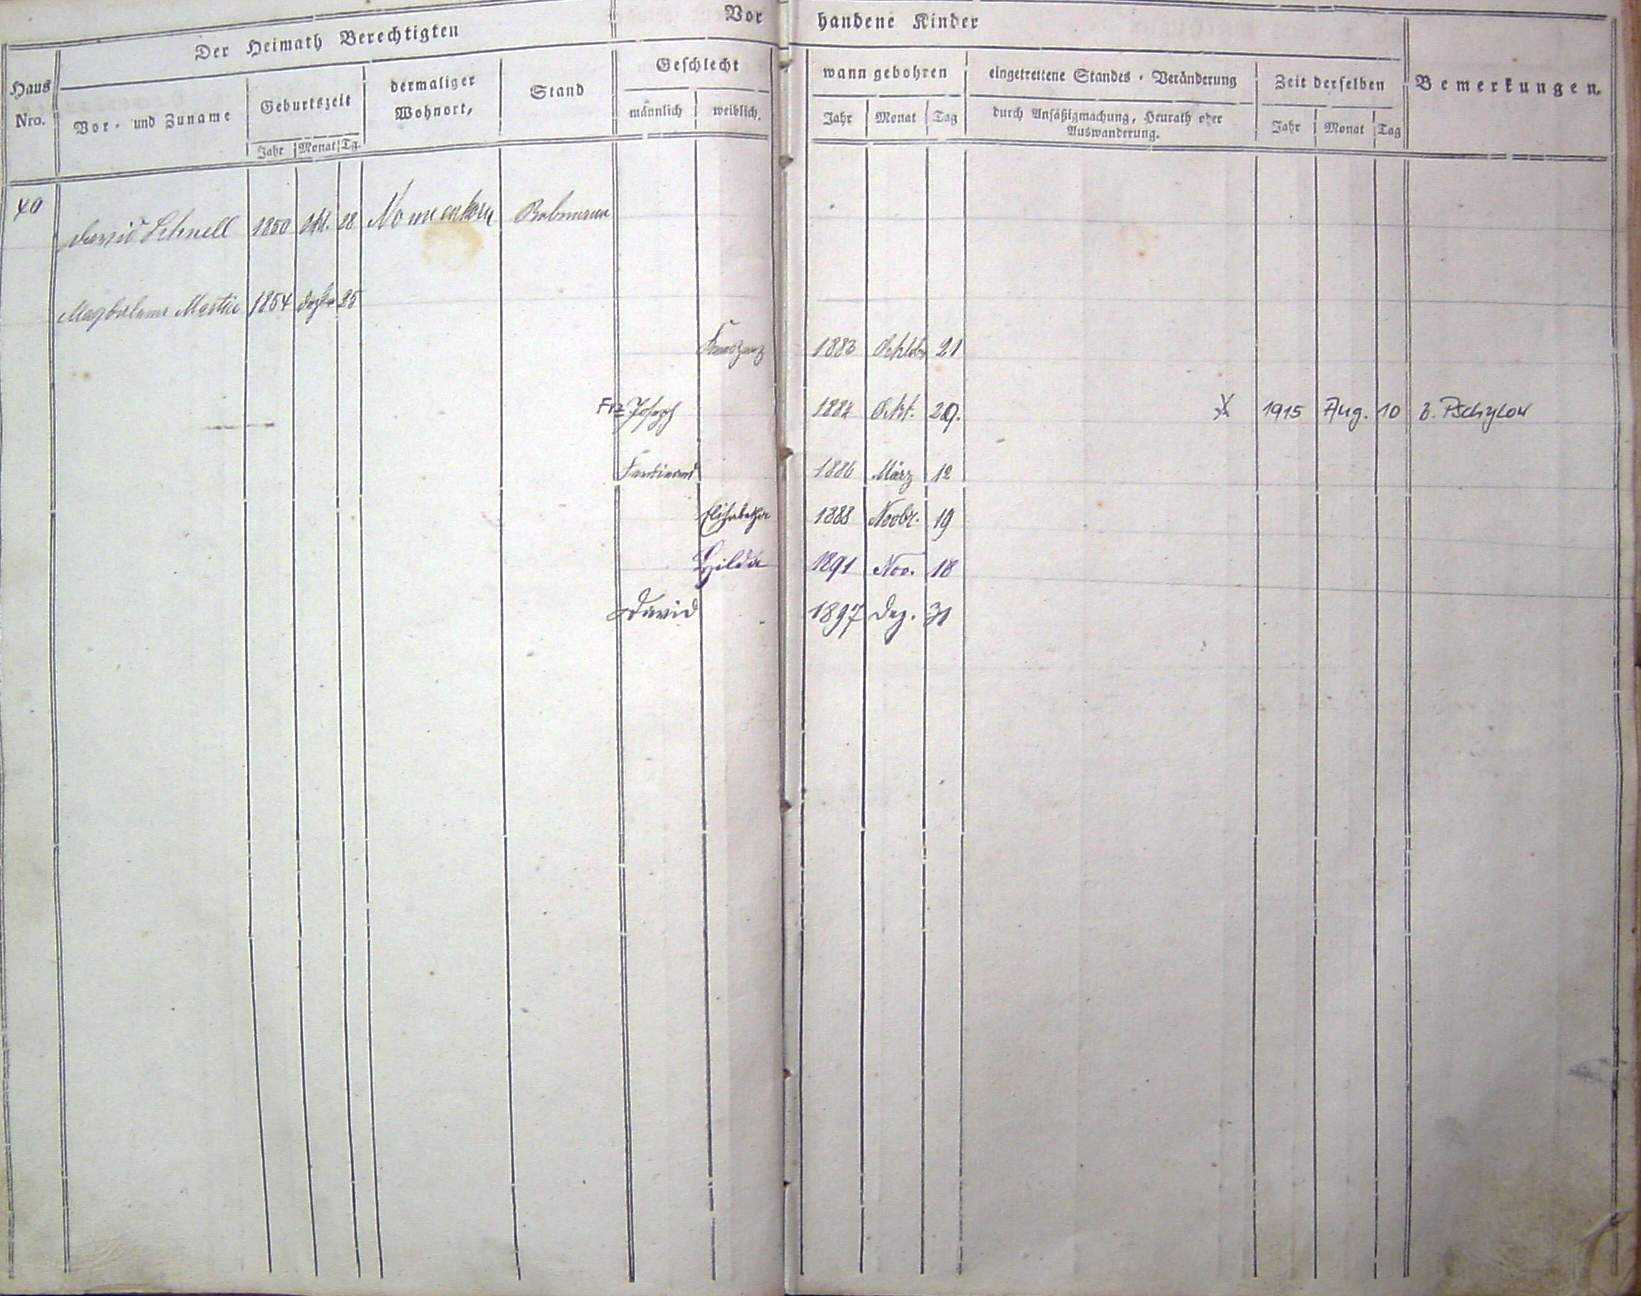 Der Heimath Berechtigten
Vorhandene Kinder
Haus Nro.
Vor- und Zuname
Geburtszeit
Jahr Monat Tg.
dermaliger Wohnort,
Stand
Geschlecht
männlich weiblich,
wann gebohren
Jahr Monat Tag
eingetrettene Standes-Veränderung
durch Ansäßigmachung, Heurath oder
Auswanderung.
Zeit derselben
Jahr Monat Tag
Bemerkungen.
40 David Schnell 1850 Okt. 28 Nonnenhorn Rebmann
Magdalena 1854 25
1883 Oktob. 21
Frz Joseph 1884 Okt. 29. 1915 Aug. 10 b. Pschylow
Ferdinand 1886 März 12
Elisabetha 1888 Novbr. 19
Hilda 1891 Nov. 18
David 1897 Dez. 31